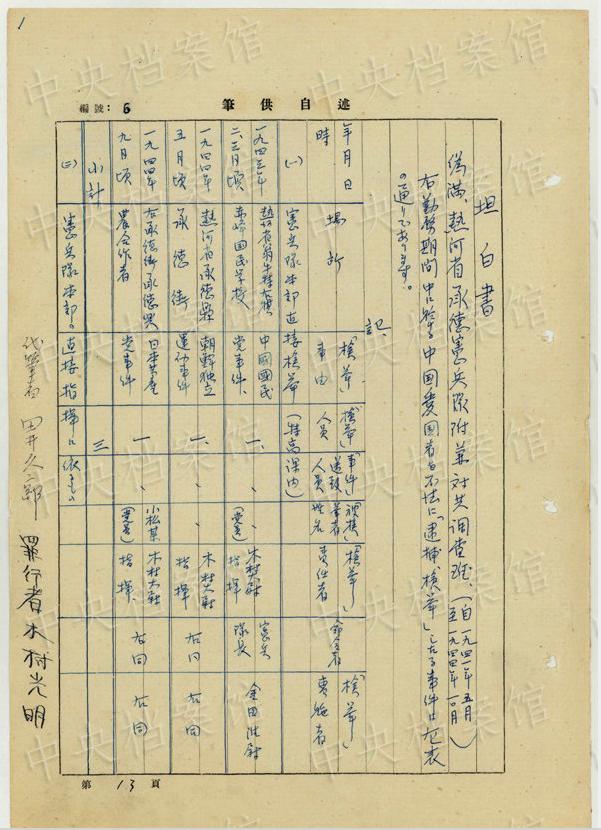 1
編號：6
述自供筆
坦白書
偽満、熱河省承徳憲兵隊附兼対共調査班、(自一九四一年五月 至一九四四年一〇月)
右勤務期間中に於ける中国愛国者を不法に「逮捕」「検挙」したる事件は左表
の通りであります。
記、
年月日時
場所
「検挙」事由
「検挙」人員
「事件」送致人員
「検挙」責任者
命令者
「検挙」実施者
(一) 憲兵隊本部直接検挙 (特高課内)
一九四三年二、三月頃
赤峰国民学校
中國國民党事件、
一、
、
木村大尉指揮
憲兵隊長
金田准尉
一九四四年五月頃
熱河省承徳縣承徳街
朝鮮独立運動事件
一、
、
木村大尉指揮
右同
右同
一九四四年九月頃
右承徳街承徳県農会作者
日本共産党事件
一、
、
小松某
木村大尉指揮、
右同
右同
小計
三
(二) 憲兵隊本部の直接指揮に依るもの
代筆者 田井久二郎
罪行者 木村光明
第13頁
中央档案馆